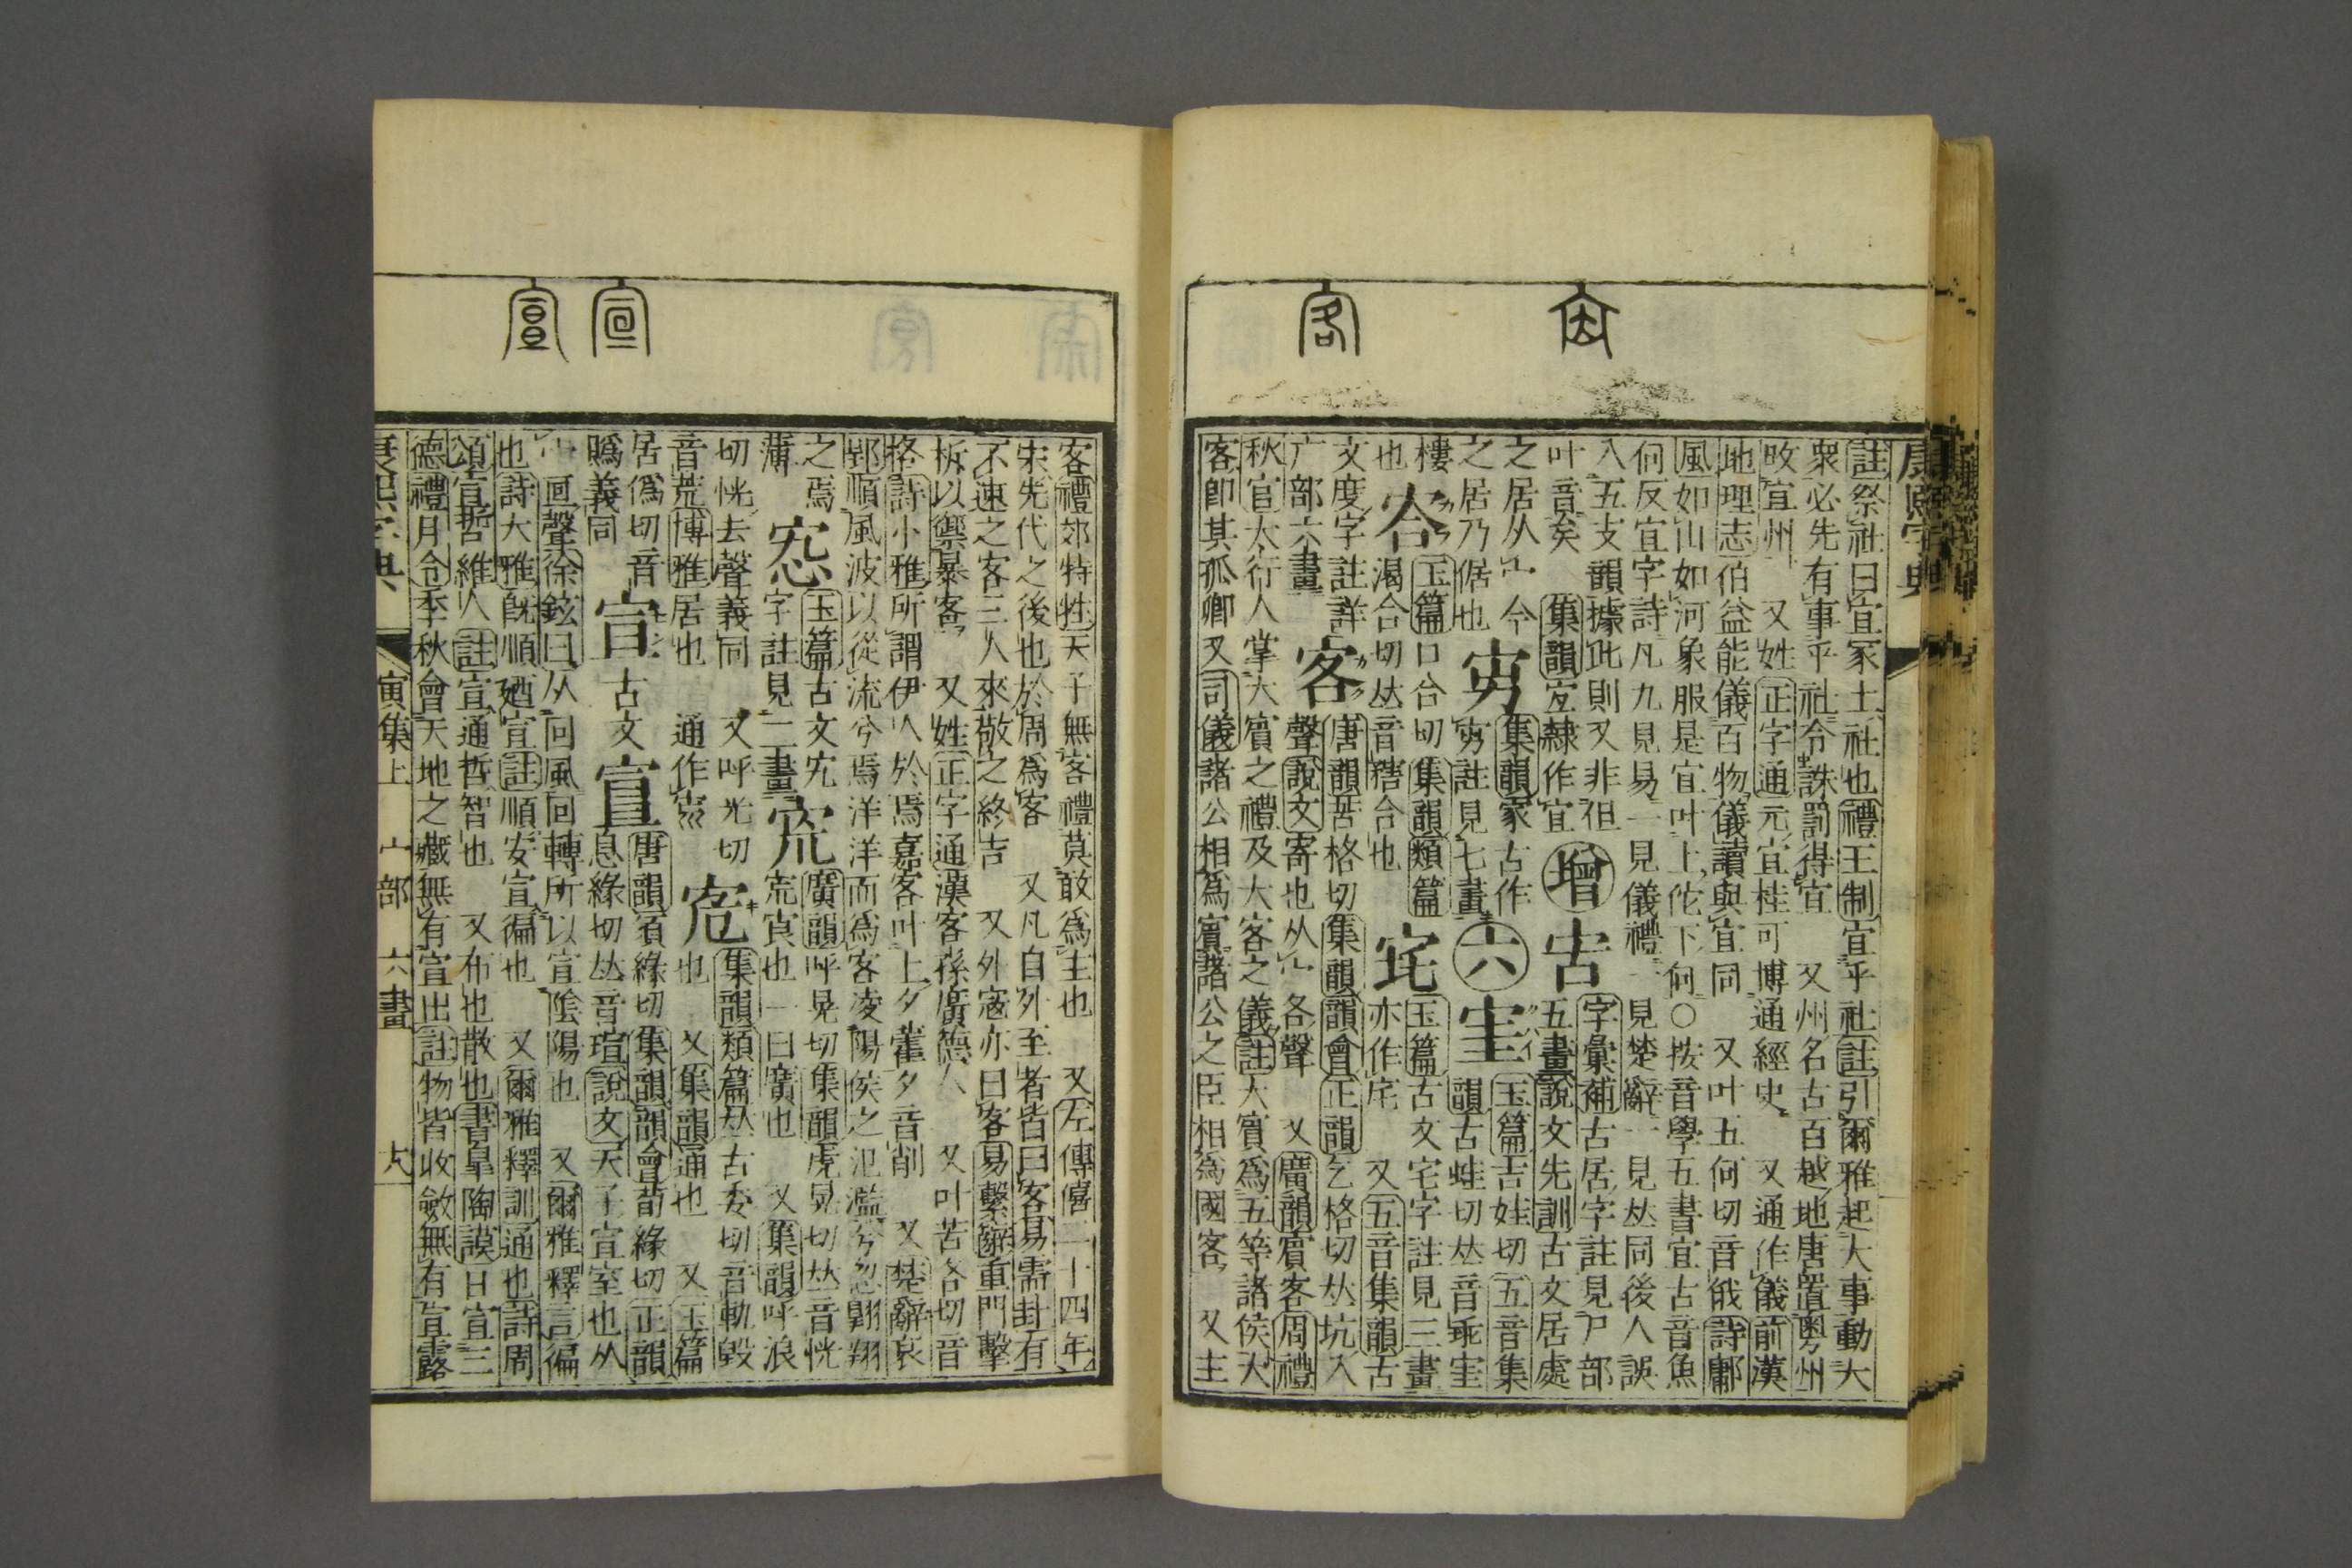 康熙字典
註祭社曰宜冢土社也禮王制宜乎社註引爾雅起大事動大
衆必先有事乎社令誅罰得宜 又州名古百越地唐置粵州
攺宜州 又姓正字通元宜桂可博通經史 又通作儀前漢
地理志伯益能儀百物儀讀與宜同 又叶五何切音俄詩鄘
風如山如河象服是宜叶上佗下何○按音學五書宜古音魚
何反宜字詩凡九見易一見儀禮一見楚辭一見𠀤同後人誤
入五支韻據此則又非但
叶音矣 集韻宐隸作宜
增
字彙補古居字註見尸部
五畫說文先訓古文居處
之居从宀今
之居乃倨也
集韻冡古作
註見七畫
六
玉篇古娃切五音集
韻古蛙切𠀤音乖
樓
也
㝓
玉篇口合切集韻類篇
渴合切𠀤音榼合也
玉篇古文宅字註見三畫
亦作㡯 又五音集韻古
文度字註詳
广部六畫
客
唐韻苦格切集韻韻會正韻乞格切𠀤坑入
聲說文寄也从宀各聲 又廣韻賔客周禮
秋官大行人掌大賔之禮及大客之儀註大賔爲五等諸侯大
客卽其孤卿又司儀諸公相爲賔諸公之臣相爲國客 又主
客禮郊特牲天子無客禮莫敢爲主也 又左傳僖二十四年
宋先代之後也於周爲客 又凡自外至者皆曰客易需卦有
不速之客三人來敬之終吉 又外寇亦曰客易繫辭重門擊
柝以禦暴客 又姓正字通漢客孫廣德人 又叶苦各切音
格詩小雅所謂伊人於焉嘉客叶上夕藿夕音削 又楚辭哀
郢順風波以從流兮焉洋洋而爲客凌陽侯之氾濫兮忽翺翔
之焉
薄
玉篇古文
字註見二畫
廣韻呼晃切集韻虎晃切𠀤音恍
㡃㝩也一曰廣也 又集韻呼浪
切恍去聲義同 又呼光切
音荒博雅居也 通作
集韻類篇𠀤古委切音軌毀
也 又集韻通也 又玉篇
居僞切音
賵義同
宣
古文
唐韻須緣切集韻韻會荀緣切正韻
息緣切𠀤音瑄說文天子宣室也从
宀𠄢聲徐鉉曰从回風回轉所以宣陰陽也 又爾雅釋言徧
也詩大雅旣順廼宣註順安宣徧也 又爾雅釋訓通也詩周
頌宣哲維人註宣通哲智也 又布也散也書皐陶謨日宣三
德禮月令季秋會天地之藏無有宣出註物皆收斂無有宣露
康熙字典 寅集上 宀部 六畫 十八